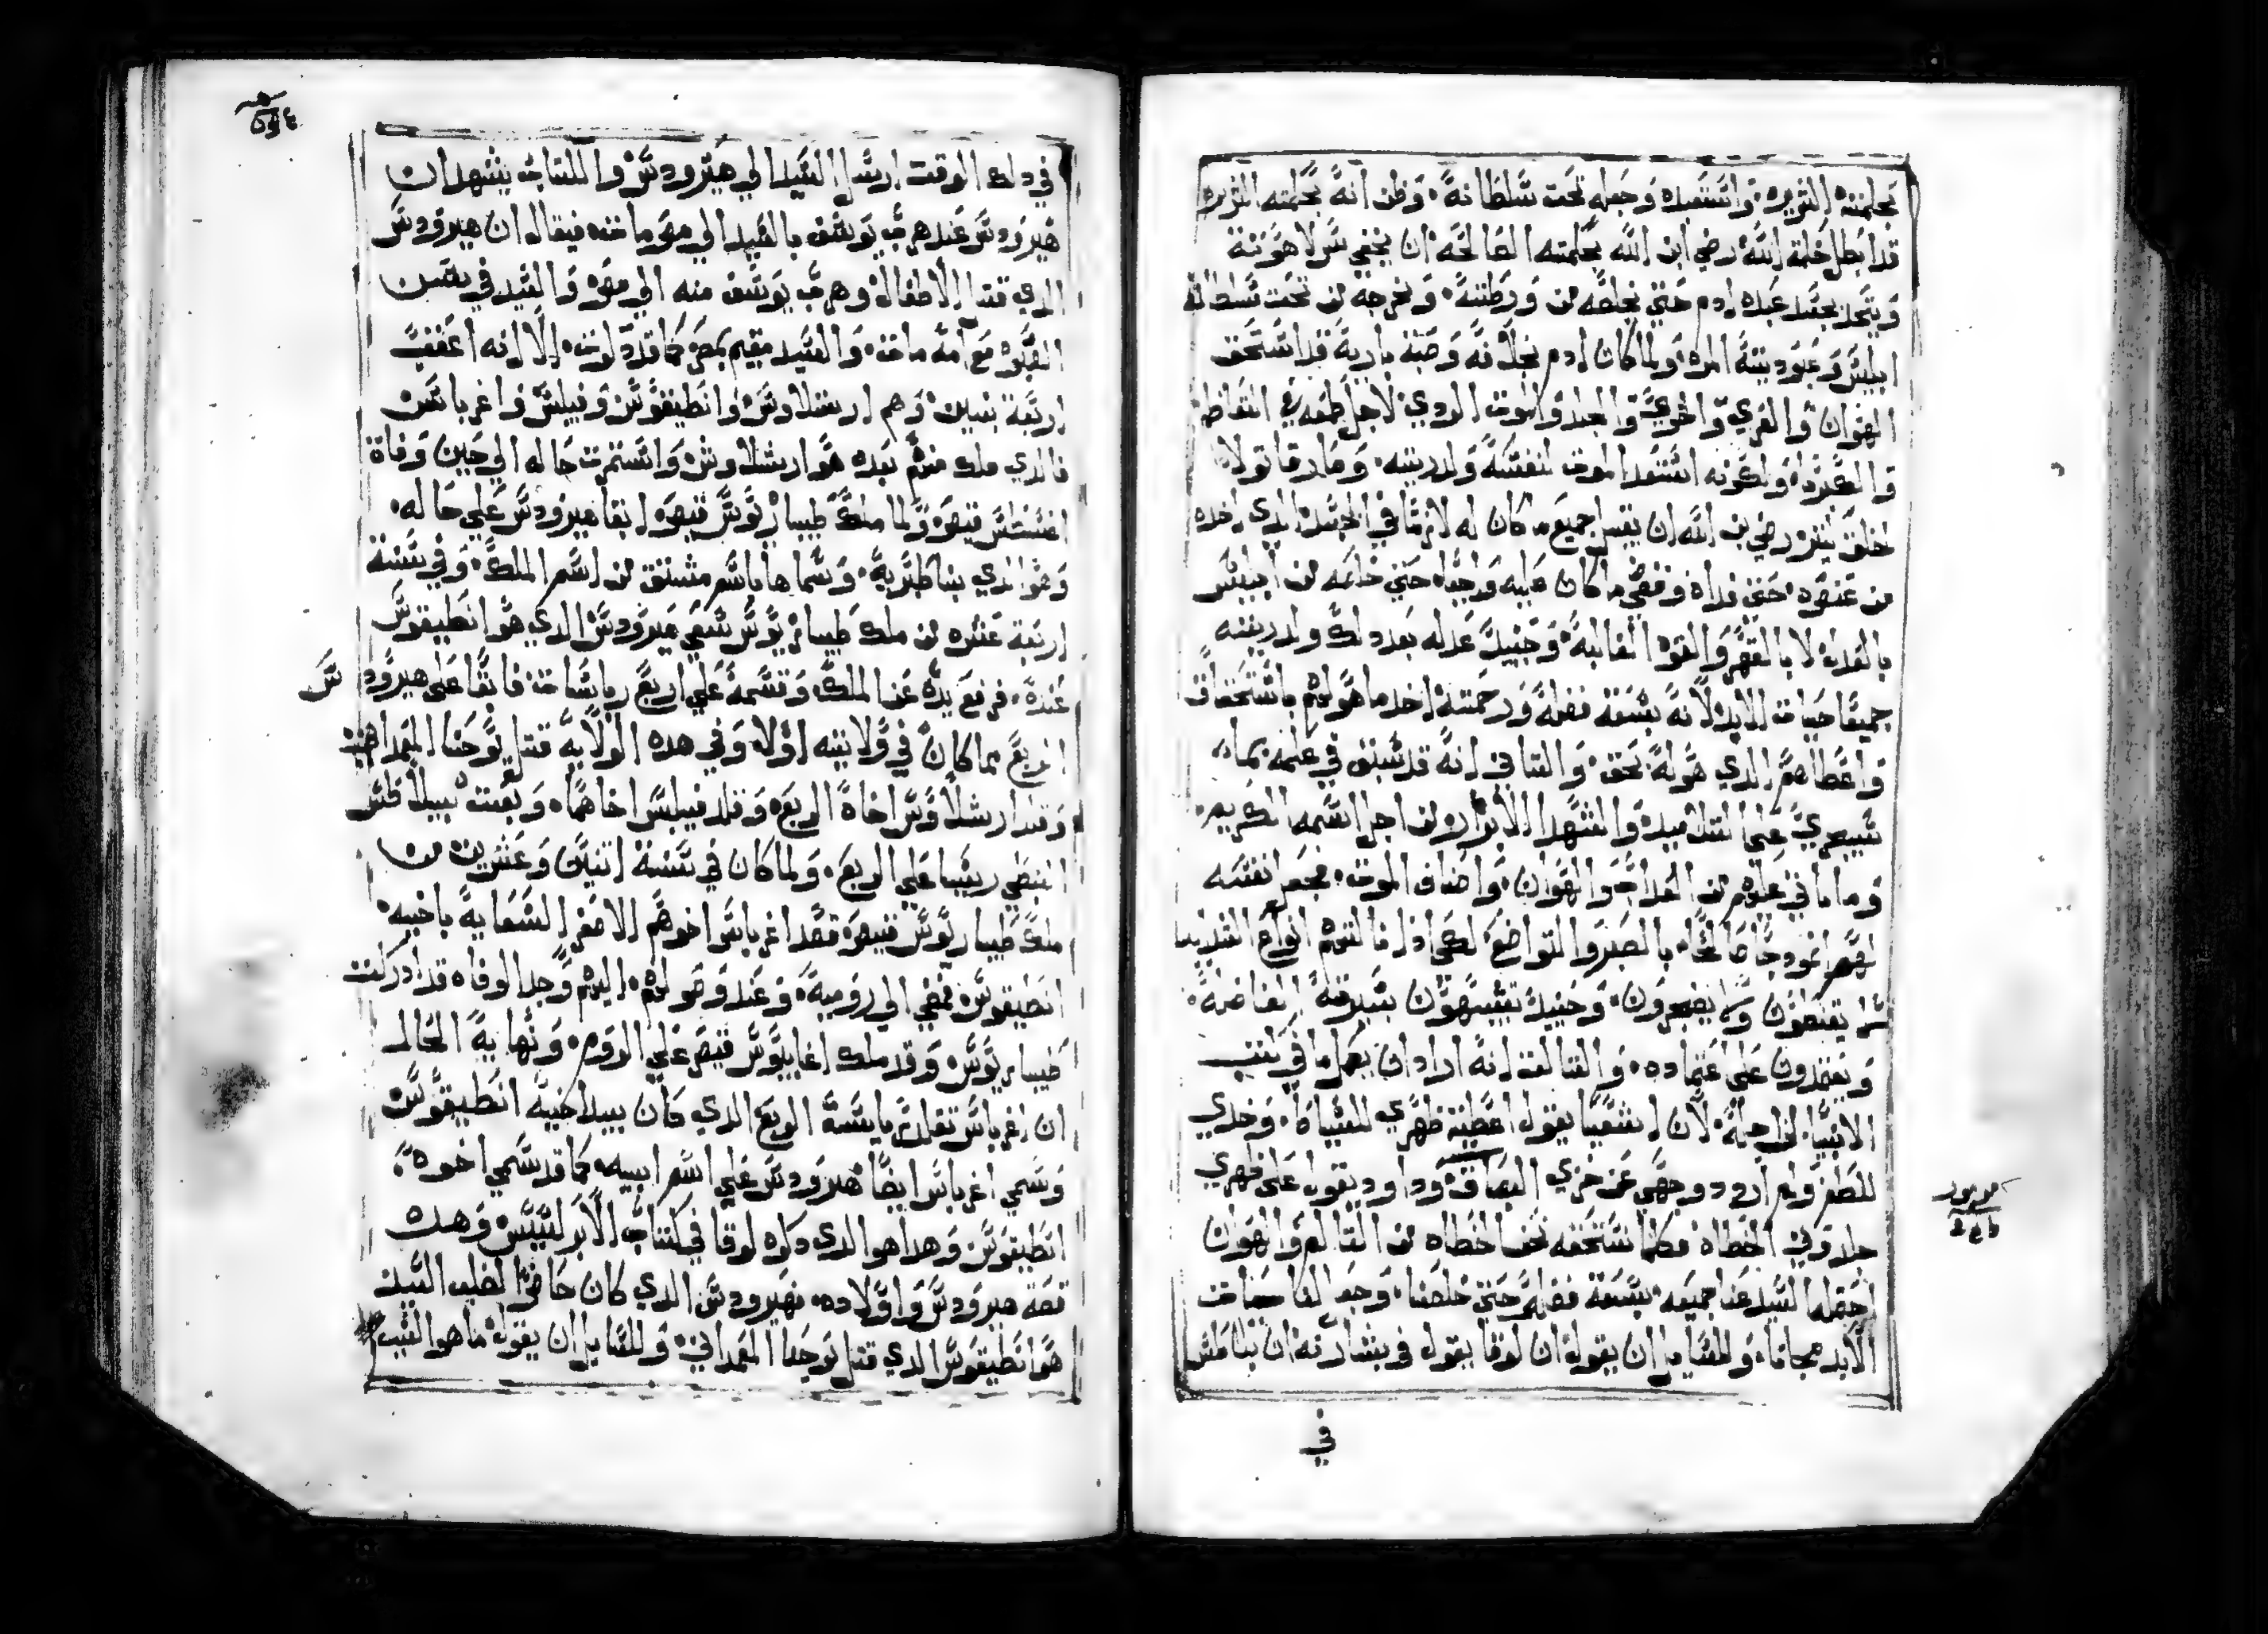 بحكمته الشريره واستعبده وجعله تحت سلطانه وظن انه بحكمته الشريره
قد ابطل خلقة الله رضي ابن الله بحكمته الصالحه ان يخفي سر لاهوته
ويتحد بجسد عبده ادم حتي يخلصه من ورطته ويخرجه من تحت سلطان
ابليس وعبوديته المره ولما كان ادم بخلافه وصية باريه قد استحق
الهوان والعري والخزي والجلد والموت الردي لاجل طمعه في التعاظم
والكبريا ولكونه استعد الموت لنفسه ولدريته وما رقا تولا
اخلق يتنو رضي بن الله ان يقبل جميع ما كان له لازما في الجسد الدي اخده
من عنصره حتي فداه وقضي ما كان عليه واجبا حتي خلصه من ابليس
بالعداله لا بالقهر والقوه الغالبه وحينيد عدله بعد دلك ولدريته
جميعا حياة الابد لانه بسعة فضله ورحمته اخد ما هو لهم باستحقاق
واعطاهم الدي هو له بحق والتاني انه قد سبق في علمه بما
سيجري علي التلاميد والشهدا الابرار من اجل اسمه الكريم
وما ياتي عليهم من العداب والهوان واصناف الموت فجعل نفسه
لهم انمودجا صالحا بالصبر والتواضع لكي ادا نالتهم انواع الشدايد
لا يقنطون ولا يضجرون وحينيد يتشبهون بسيرته الفاضله
ويعتمدون علي اعتماده والتالت انه اراد ان يكمل ما في كتب
الانبيا من اجله لان اشعيا يقول اعطيت ظهري للسياط وخدي
للطم ولم ارد وجهي عن خزي البصاق وداود يقول علي ظهري
جلدوني الخطاه فكلما نستحقه نحن الخطاه من الالم والهوان
احتمله السيد عنا جميعه بسعة فضله حتي خلصنا وجعل لنا حياة
الابد مجانا وللسايل ان يقول ان لوقا يقول في بشارته ان بيلاطس
في
في دلك الوقت ارسل السيد الي هيرودس والكتاب يشهد ان
هيرودس عند هرب يوسف بالسيد الي مصر مات فيقال ان هيرودس
الدي قتل الاطفال وهرب يوسف منه الي مصر والسيد في سن
الصبوه مع امه مات والسيد مقيم بمصر كما قد دلوت الا انه اعقب
اربعة بنين وهم ارشلاوس وانطيقوس وفيلبس واغرباس
فالدي ملك منهم بعده هو ارشلاوس واستمرت حاله الي حين وفاة
اغسطس قيصر ولما ملك طيباريوس قيصر ابقا هيرودس علي حاله
وهو الدي بنا طبريه وسماها باسم مشتق من اسم الملك وفي سنة
اربعة عشره من ملك طيباريوس شقي هيرودس الدي هو انطيقوس
عنده فرفع يده عن الملك وقسمه علي اربع رياسات فابقا علي هيرودس
الربع بما كان في ولايته اولا وفي هده الولايه قتل يوحنا المعمداني
وقتل ارشلاوس اخاه الربع وقلد فيلبس اخاهما وبعت بيلاطس
البنطي رييسا علي الربع ولما كان في سنة اتنين وعشرين من
ملك طيباريوس قيصر قصد اغرباس اخوهم الاصغر السعايه باخيه
انطيقوس فمضي الي روميه وعند وصوله اليها وجد الوفاه قد ادركت
طيباريوس وقد ملك اغابيوس قيصر علي الروم ونهاية الحال
ان اغرباس تقلد رياسة الربع الدي كان بيد اخيه انطيقوس
وسمي اغرباس ايضا هيرودس علي اسم ابيه كما قد سمي اخوه
انطيقوس وهدا هو الدي دكره لوقا في كتاب الابركسيس وهده
قصة هيرودس واولاده فهيرودس الدي كان حاضرا لصلب السيد
هو انطيقوس الدي قتل يوحنا المعمداني وللسايل ان يقول ما هو السبب